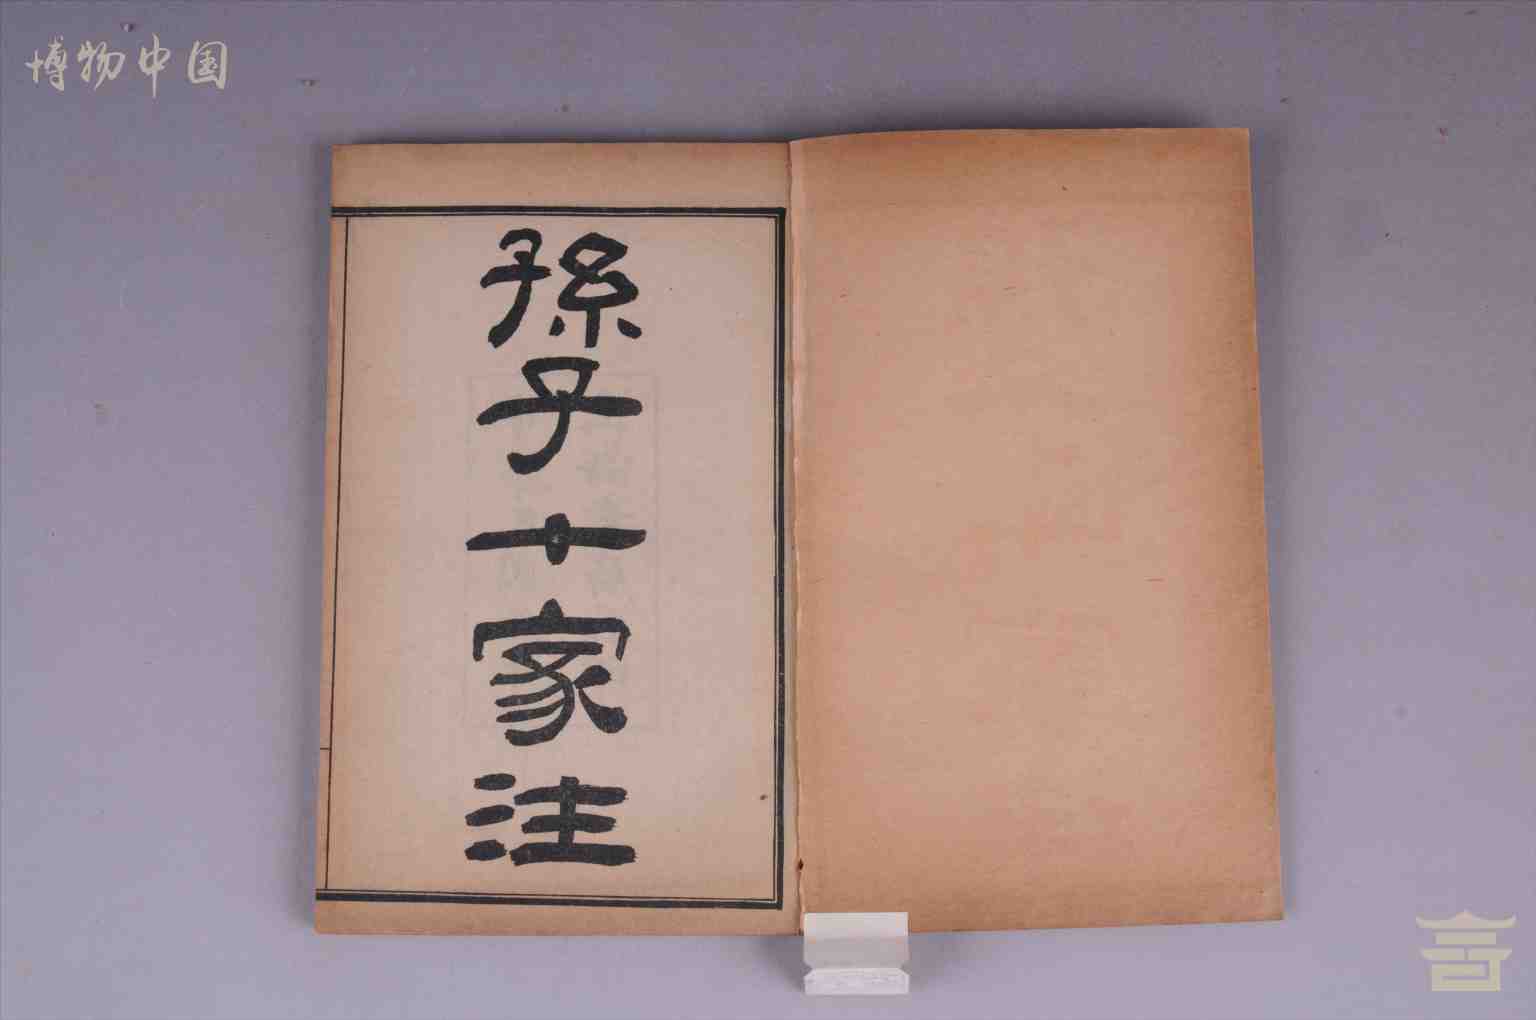 博物中国
孫子十家注